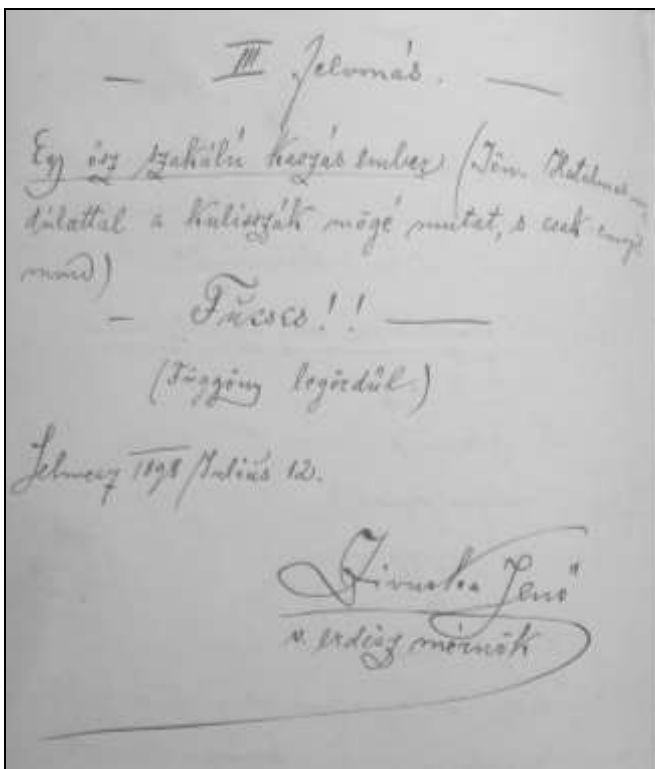 — III Jelvonás. —
Egy ősz szakálú kaszás ember (Jön. Hatalmas
dúlattal a kulisszák mögé mutat, s csak ennyit
mond)
— Fűcscs!! —
(Függöny legördűl.)
Selmecz 1898 Július 12.
Jenő"
v. erdész mérnök